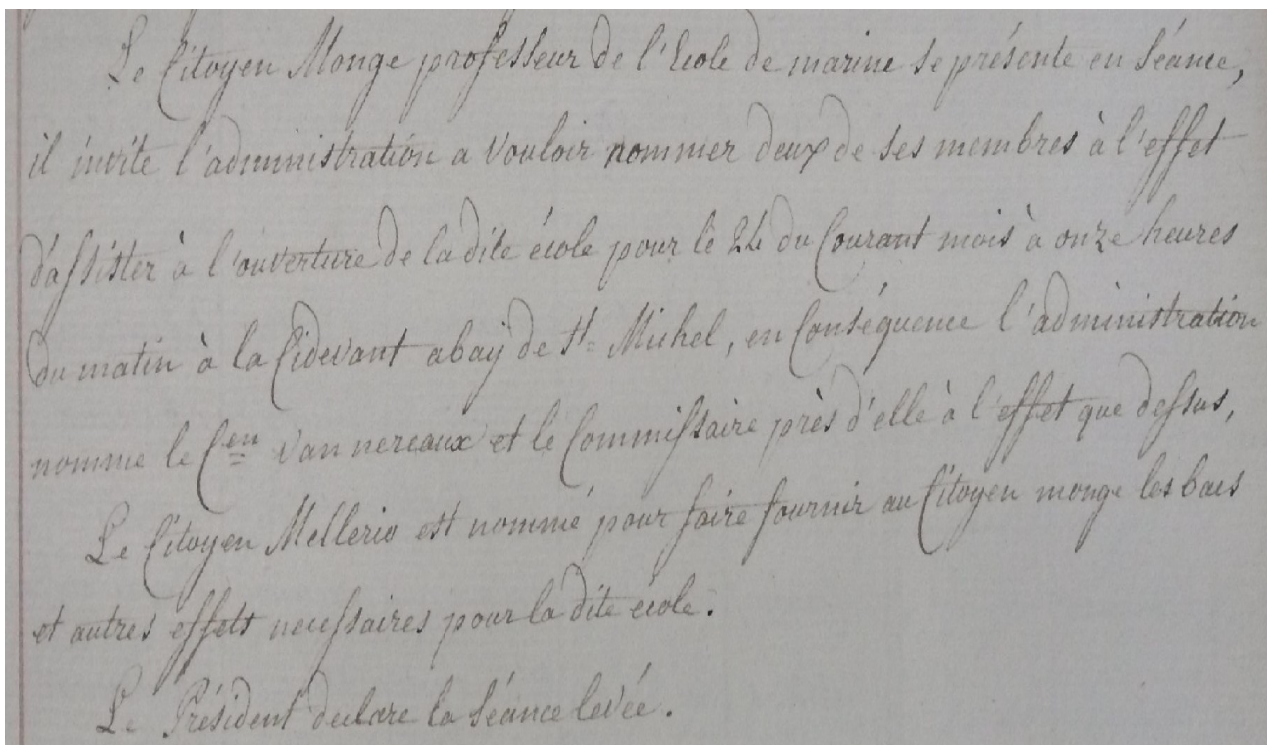 Le Citoyen Monge professeur de l'Ecole de marine se présente en séance,
il invite l'administration a vouloir nommer deux de ses membres à l'effet
d'assister à l'ouverture de la dite école pour le 24 du Courant mois à onze heures
du matin à la Cidevant abaÿ de St= Michel, en Conséquence l'administration
nomme le Cen Van nereaux et le Commissaire près d'elle à l'effet que dessus,
Le Citoyen Mellerio est nommé pour faire fournir au Citoyen monge les bacs
et autres effets necessaires pour la dite ecole.
Le Président declare la séance levée.